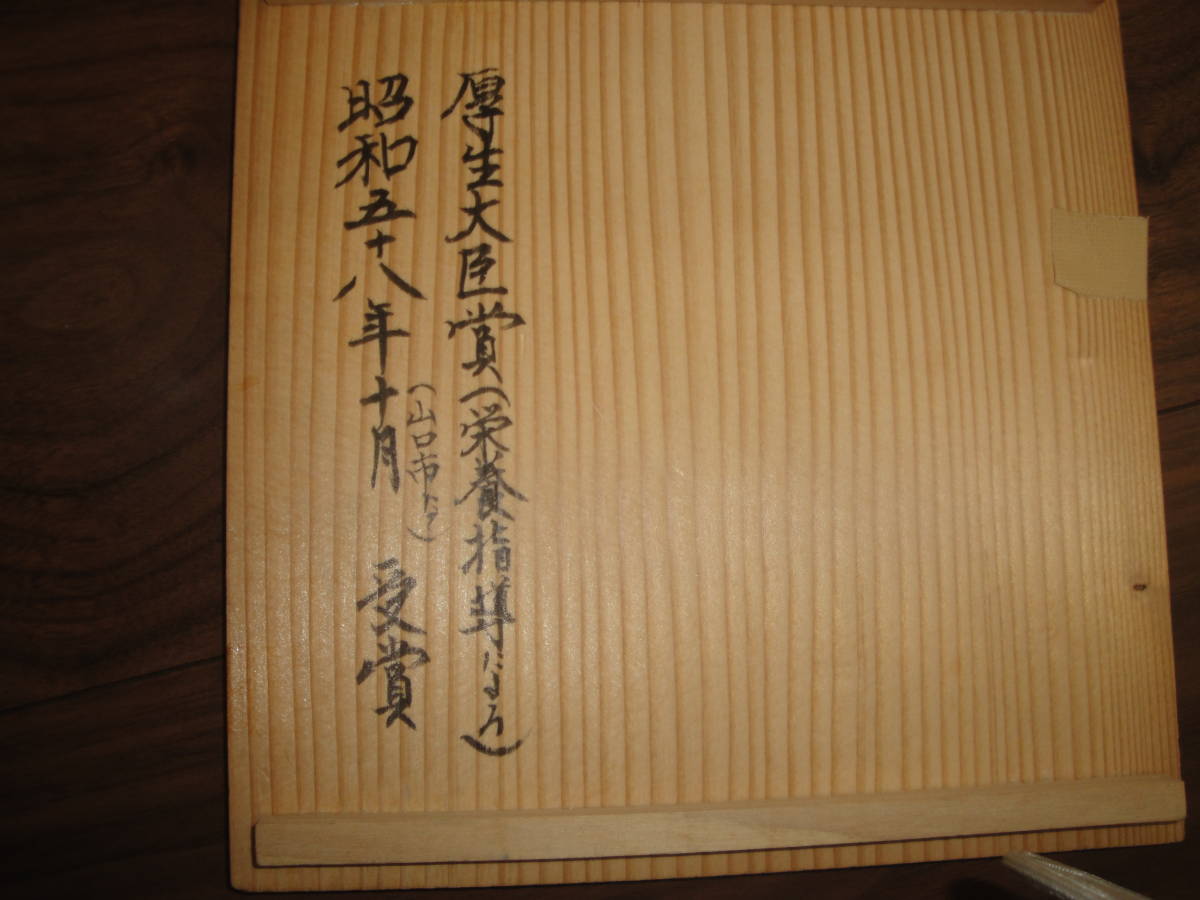 厚生大臣賞(栄養指導による)
(山口市にて)
昭和五十八年十月 受賞